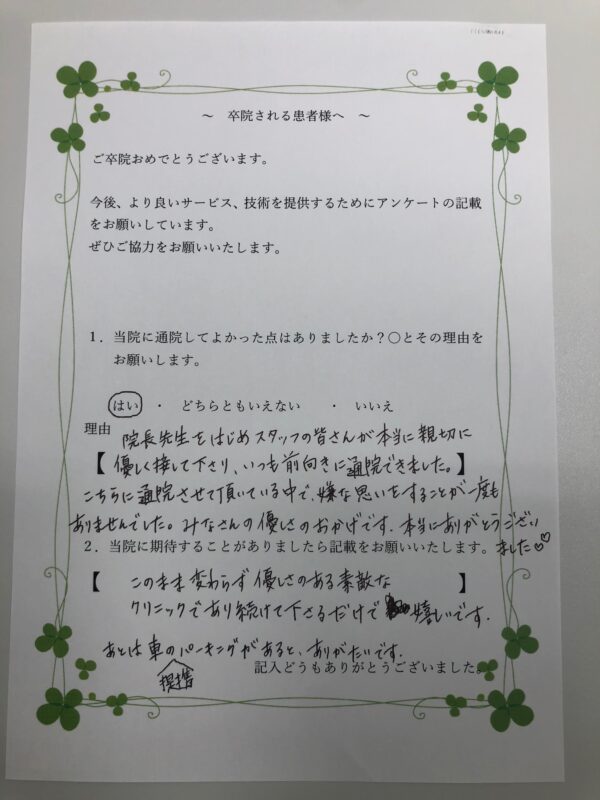 ～ 卒院される患者様へ ～
ご卒院おめでとうございます。
今後、より良いサービス、技術を提供するためにアンケートの記載
をお願いしています。
ぜひご協力をお願いいたします。
1．当院に通院してよかった点はありましたか？〇とその理由を
お願いします。
はい ・ どちらともいえない ・ いいえ
理由 院長先生をはじめスタッフの皆さんが本当に親切に
【 優しく接して下さり、いつも前向きに通院できました。】
こちらに通院させて頂いている中で、嫌な思いをすることが一度も
ありませんでした。みなさんの優しさのおかげです。本当にありがとうござい
ました♡♡
2．当院に期待することがありましたら記載をお願いいたします。
【 このまま変わらず優しさのある素敵な 】
クリニックであり続けて下さるだけで嬉しいです。
あとは車の提携パーキングがあると、ありがたいです。
記入どうもありがとうございました。